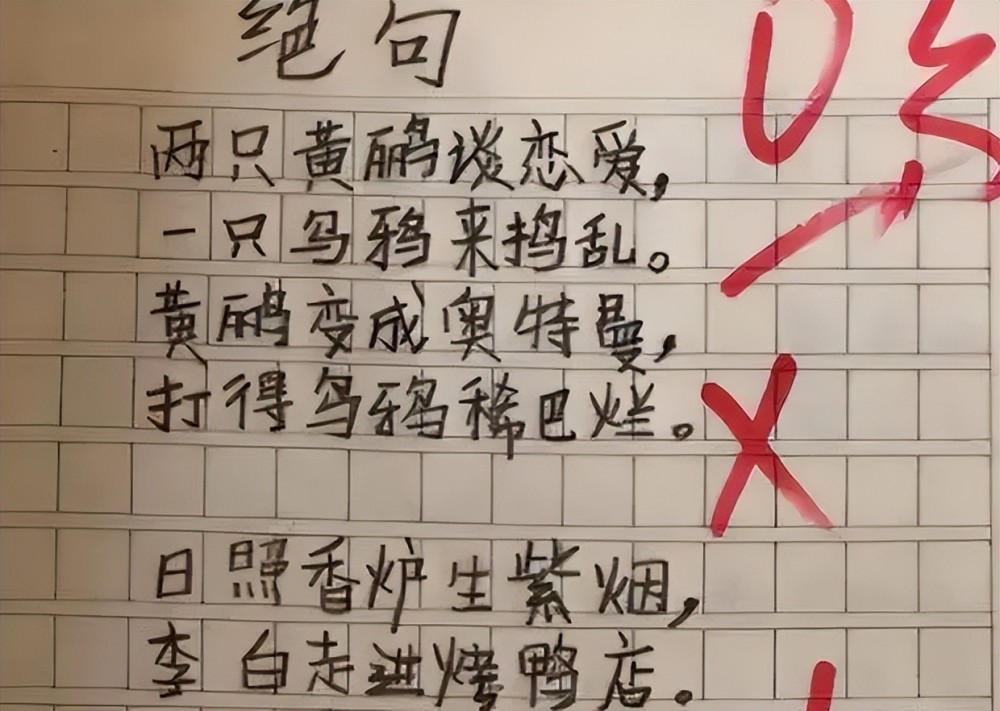 绝句
两只黄鹂谈恋爱，
一只乌鸦来捣乱。
黄鹂变成奥特曼，
打得乌鸦稀巴烂。
日照香炉生紫烟，
李白走进烤鸭店。